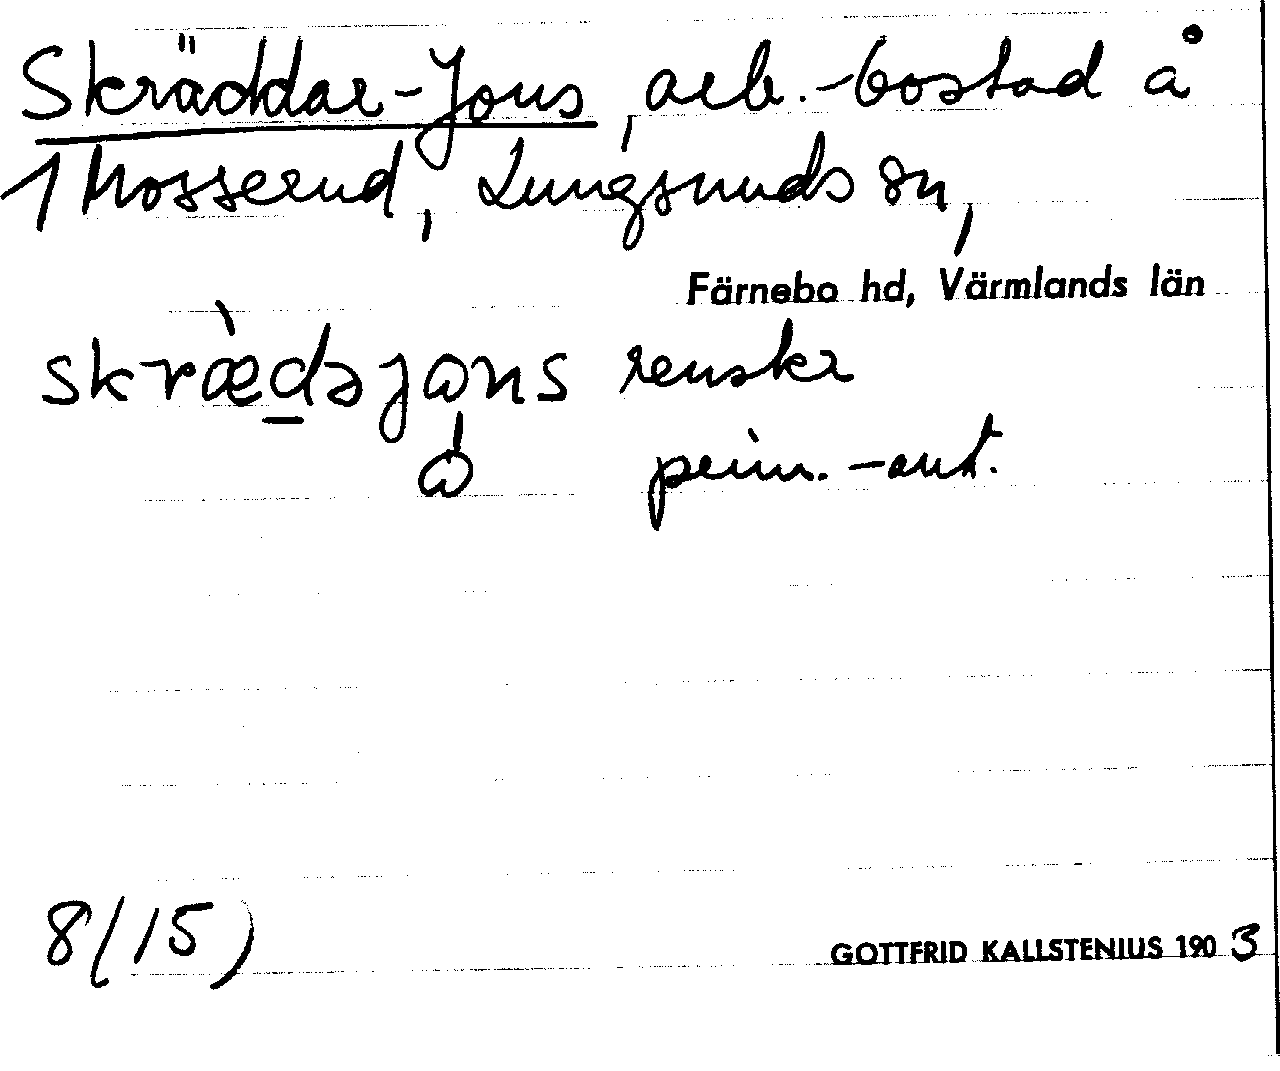 Skräddar-Jons, arb.-bostad å
1 Mosserud, Lungsunds sn,
Färnebo hd, Värmlands län
skræ̀dəjons renskr
prim.-ant.
8(15)
GOTTFRID KALLSTENIUS 1903